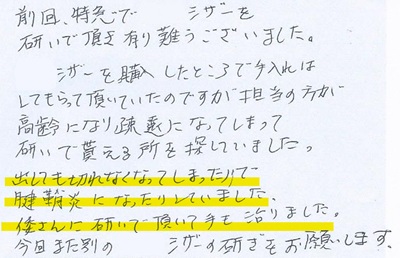 前回、特急で シザーを
研いで頂き有り難うございました。
シザーを購入したところで手入れは
してもらって頂いていたのですが担当の方が
高齢になり疎遠になってしまって
研いで貰える所を探していました。
出しても切れなくなってしまったりで
腱鞘炎になったりしていました、
倭さんに研いで頂いて手も治りました。
今回また別の シザーの研ぎをお願いします。